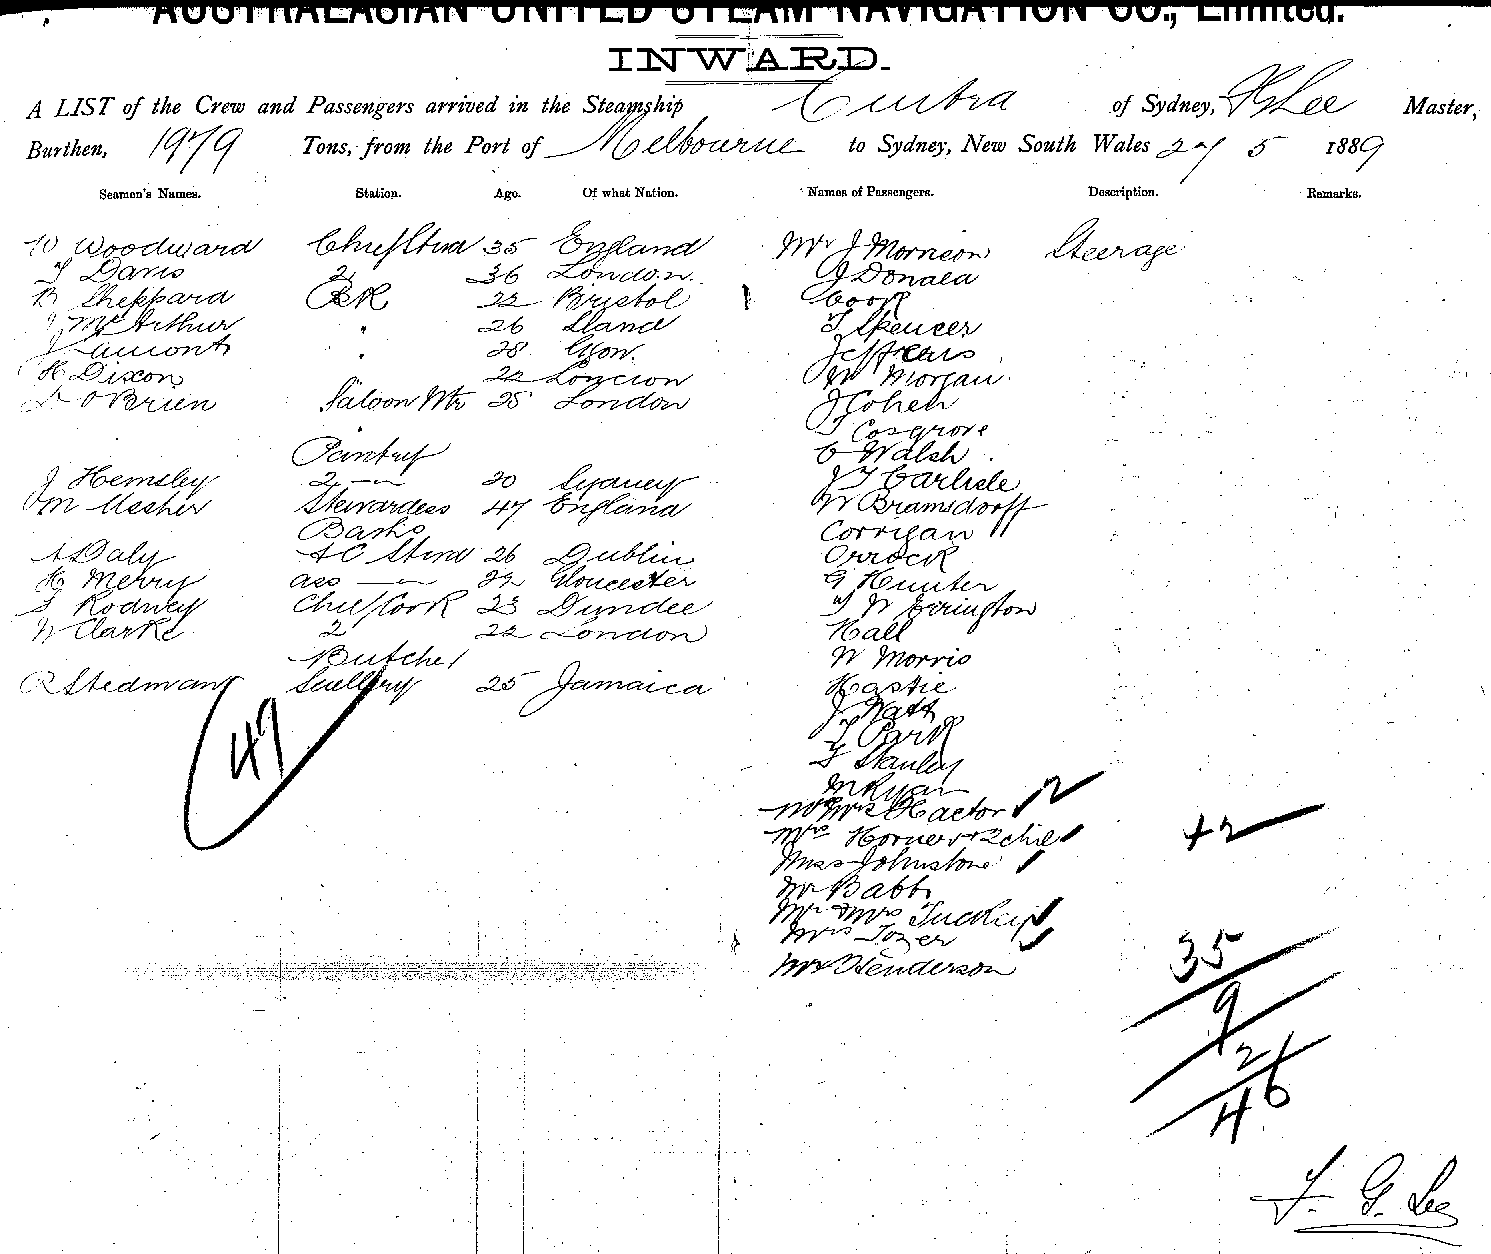 AUSTRALASIAN UNITED STEAM NAVIGATION CO., Limited.
INWARD.
A LIST of the Crew and Passengers arrived in the Steamship Cintra of Sydney, F G Lee Master,
Burthen, 1979 Tons, from the Port of Melbourne to Sydney, New South Wales 27 5 1889
Seamen's Names. Station. Age. Of what Nation. Names of Passengers. Description. Remarks.
W Woodward Chief Stwd 35 England Mr J Morrison Steerage
T Davis 2 36 London J Donald
B Sheppard 22 Bristol Cook
J McArthur " 26 T Spencer
J Lamont " 28 Jeffreys
H Dixon 22 London W Morgan
D O'Brien Saloon Wtr 25 London J Cohen
T Cosgrove
Pantry C Walsh
J Hemsley 2 — 20 Sydney J T Carlisle
M Ussher Stewardess 47 England W Bramsdorff
Barks Corrigan
A Daly F C Stwd 26 Dublin Orrock
H Merry ass — 22 Gloucester G Hunter
J Rodney Chief Cook 23 Dundee T W Errington
W Clarke 2 22 London Hall
Butcher W Morris
R Stedman Scullery 25 Jamaica Hastie
J Watt
47 T Park
F Stanley
M Ryan
Mr Mrs Hactor 2
Mrs Horner + 2 chil +2
Miss Johnstone
Mr Babb
Mr & Mrs Tuckey
Mrs Tozer 35
Mr Henderson
9
2
46
F. G. Lee